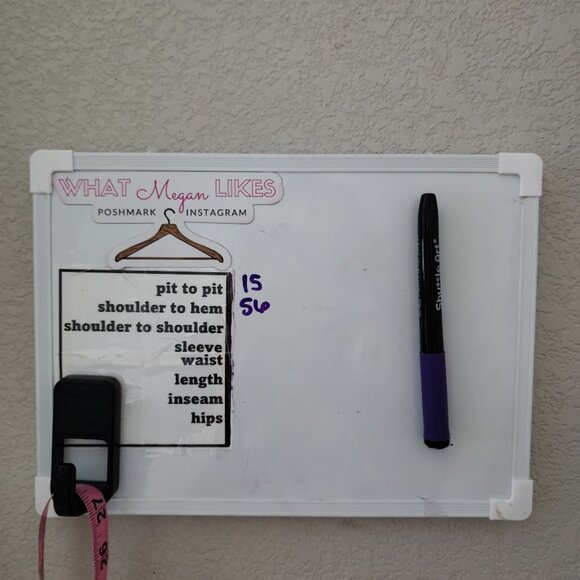 WHAT Megan LIKES
POSHMARK INSTAGRAM
pit to pit 15
shoulder to hem 56
shoulder to shoulder
sleeve
waist
length
inseam
hips
Shuttle Art
26 27